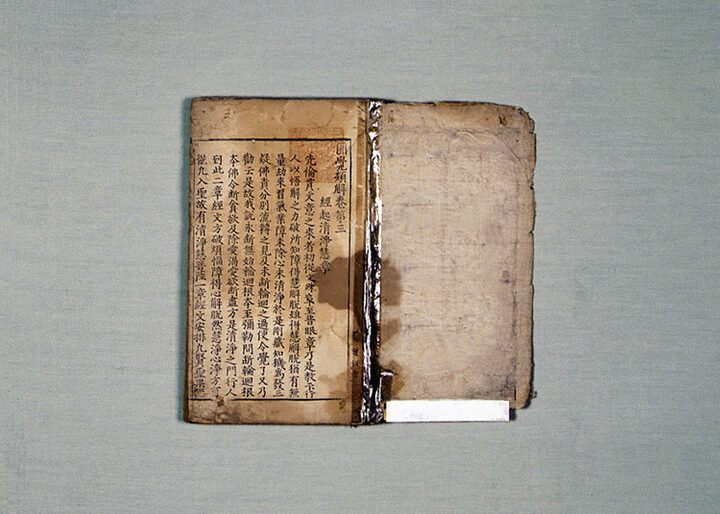 圓覺類解卷第三
經起清淨慧章
先倫貫文意之來者初從文殊章至普眼章乃是教上行
人以悟解之力破所知障得慧解脫雖得慧解脫猶有無
量劫來習氣業障未除心未清淨於是剛藏知機為發三
疑佛責分別流轉之見及未斷輪迴之過使令覺了又乃
勸云是故我說永斷無始輪迴根本至彌勒問斷輪迴根
本佛令斷貪欲及除愛渴愛欲斷盡方是清淨之門行人
到此二章經文方破煩惱障得心解脫然慧淨心淨方
從凡入聖故有清淨慧菩薩一章經文安排九賢聖